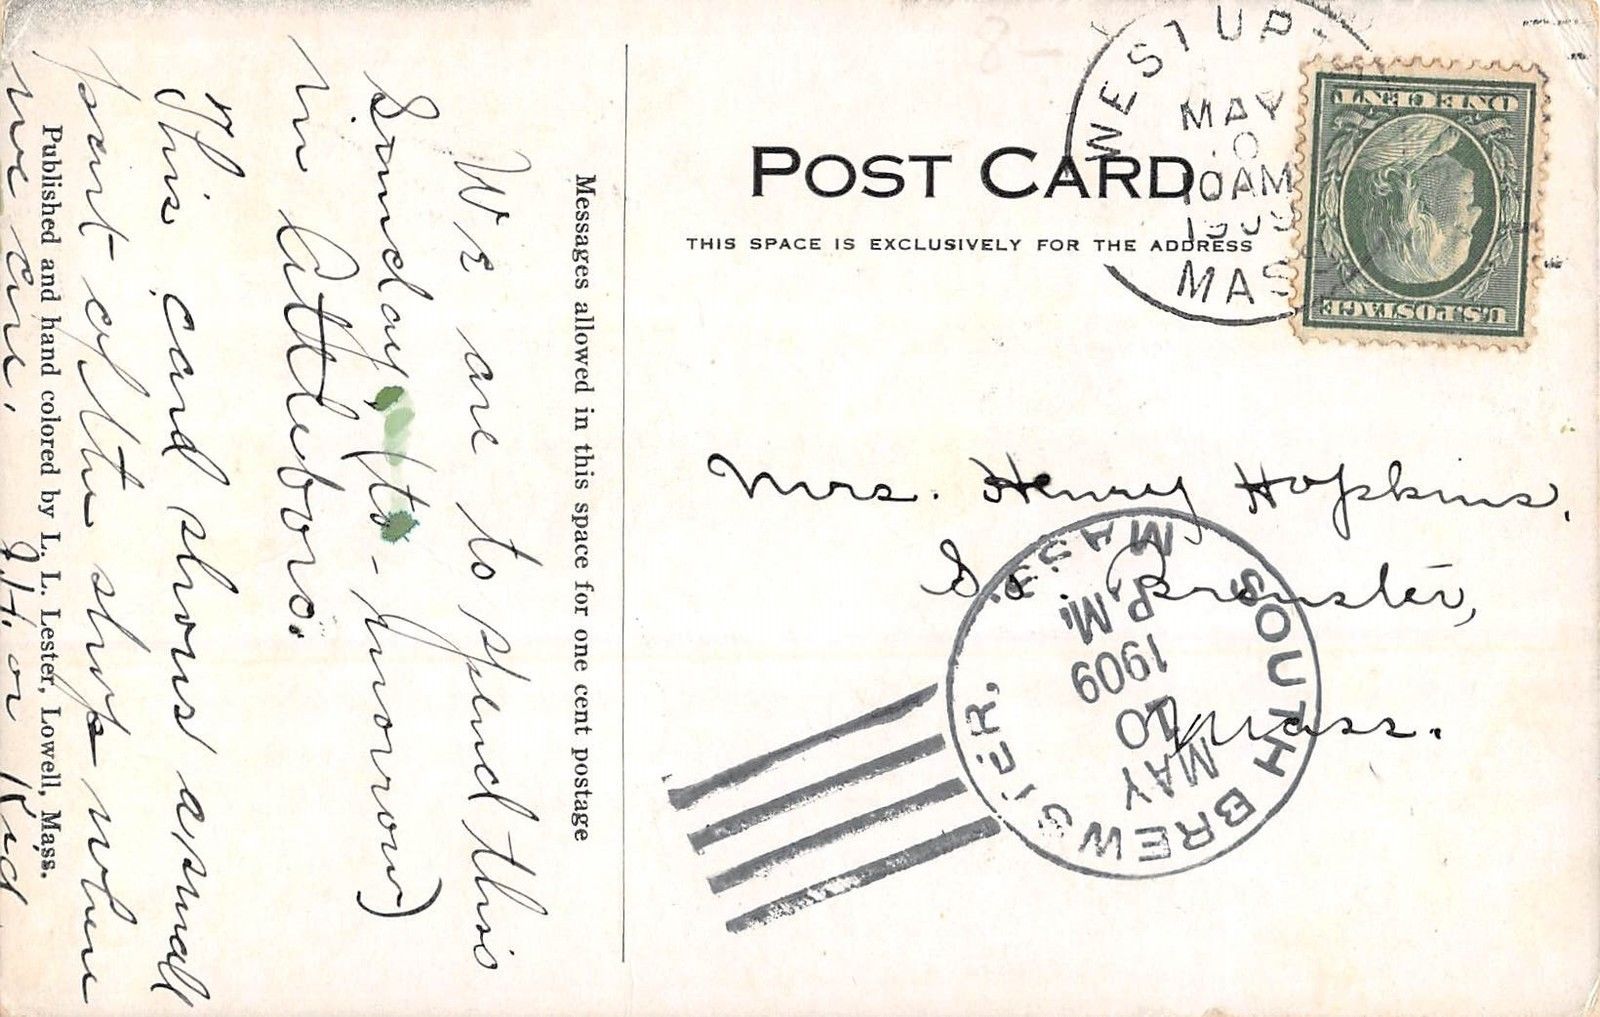 We are to spend this
Sunday, (to-morrow)
in Attleboro.
This card shows a small
part of the shop where
we are. J.H. or Kid
Messages allowed in this space for one cent postage
Published and hand colored by L. L. Lester, Lowell, Mass.
POST CARD
THIS SPACE IS EXCLUSIVELY FOR THE ADDRESS
WEST UP
MAY
10AM
1909
MAS
ONE CENT
U.S. POSTAGE
Mrs. Henry Hopkins,
So. Brewster,
Mass.
SOUTH BREWSTER, MASS.
MAY
10
1909
P.M.